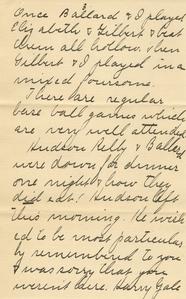 3
Once Ballard & I played
Elizabeth & Gilbert & beat
them all hollow. When
Gilbert & I played in a
mixed foursome.
There are regular
base ball games which
are very well attended
Hudson Kelly & Ballard
were down for dinner
one night & how they
did eat! Hudson left
this morning. He wish
ed to be most particular
ly remembered to you
& was sorry that you
weren't here. Harry Gale